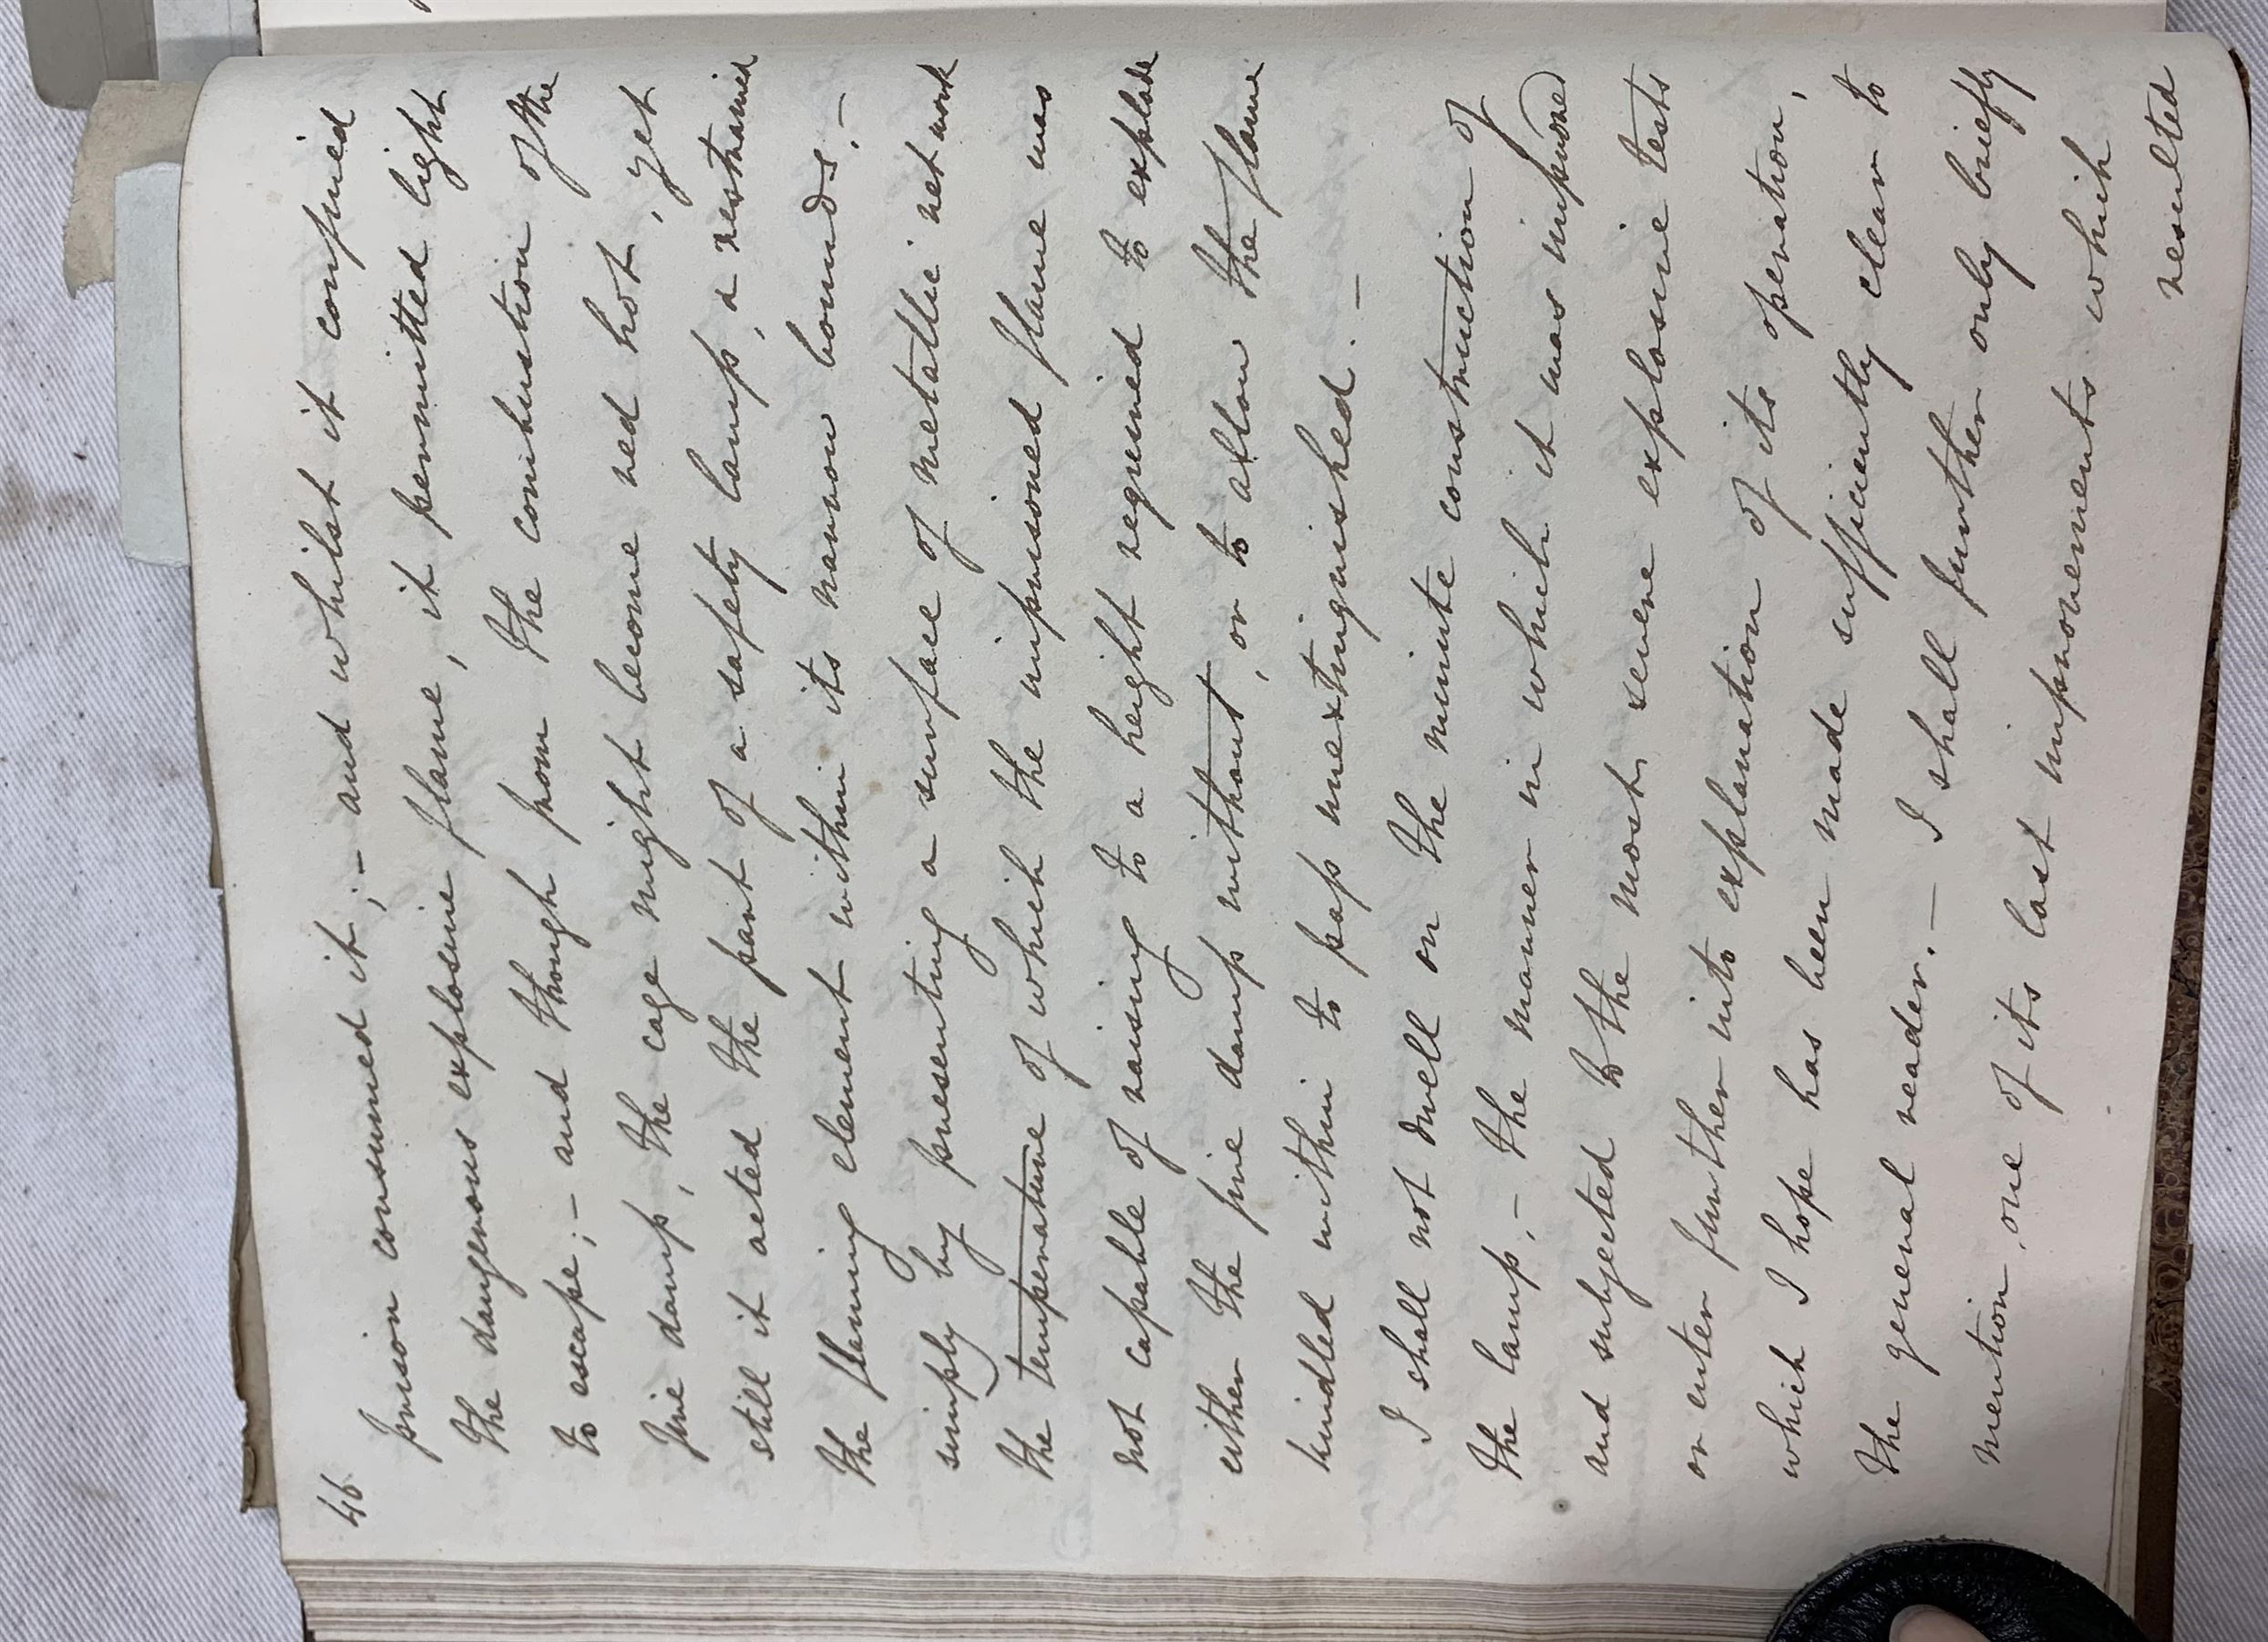 46
prison consumed it;- and whilst it confined
the dangerous explosive flame, it permitted light
to escape;- and though from the combustion of the
fire damp, the cage might become red hot, yet
still it acted the part of a safety lamp, & restrained
the flaming element within its narrow bounds.-
simply by presenting a surface of metallic net work
the temperature of which the imprisoned flame was
not capable of raising to a height required to explode
either the fire damp without, or to allow the flame
kindled within to pass unextinguished.-
I shall not dwell on the minute construction of
the lamp,- the manner in which it was improved
and subjected to the most severe explosive tests
or enter further into explanation of its operation,
which I hope has been made sufficiently clear to
the general reader.- I shall further only briefly
mention, one of its last improvements which
resulted